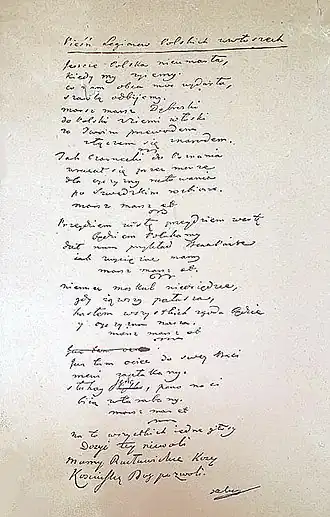 Pieśń Legionów Polskich we Włoszech
Jeszcze Polska nie umarła,
kiedy my żyjemy.
co nam obca moc wydarła,
szablą odbijemy.
marsz marsz Dąbroski
do Polski z ziemi włoski
za Twoim przewodem
złączem się z narodem.
Jak Czarnecki do Poznania
wracał się przez morze
dla ojczyzny ratowania
po szwedzkim rozbiorze.
marsz marsz et
Przejdziem Wisłę przejdziem Wartę
będziem Polakamy
dał nam przykład Bonaparte
jak zwyciężać mamy
marsz marsz et.
niemiec moskal nieosiędzie,
gdy jąwszy pałasza,
hasłem wszystkich zgoda będzie
y ojczyzna nasza.
marsz marsz et
Już tam ociec do swej Basi
mówi zapłakany.
słuchaj jeno, pono nasi
biją w tarabany.
marsz marsz et
na to wszystkich jedne głosy
Dosyć tej niewoli
Mamy Racławickie Kosy
Kościuszkę Bóg pozwoli.